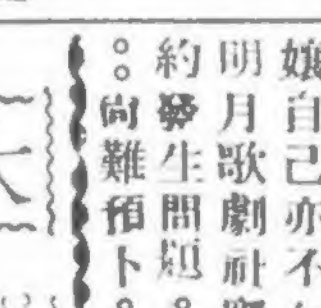 孃自己亦不
明月歌劇社
約發生問題。
。。尚難預卜。
大